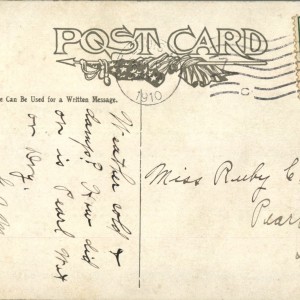 POST CARD
1910
C
e Can Be Used for a Written Message.
Weather cold &
damp? How did
on is Pearl
or Dry.
Miss Ruby C
Pear